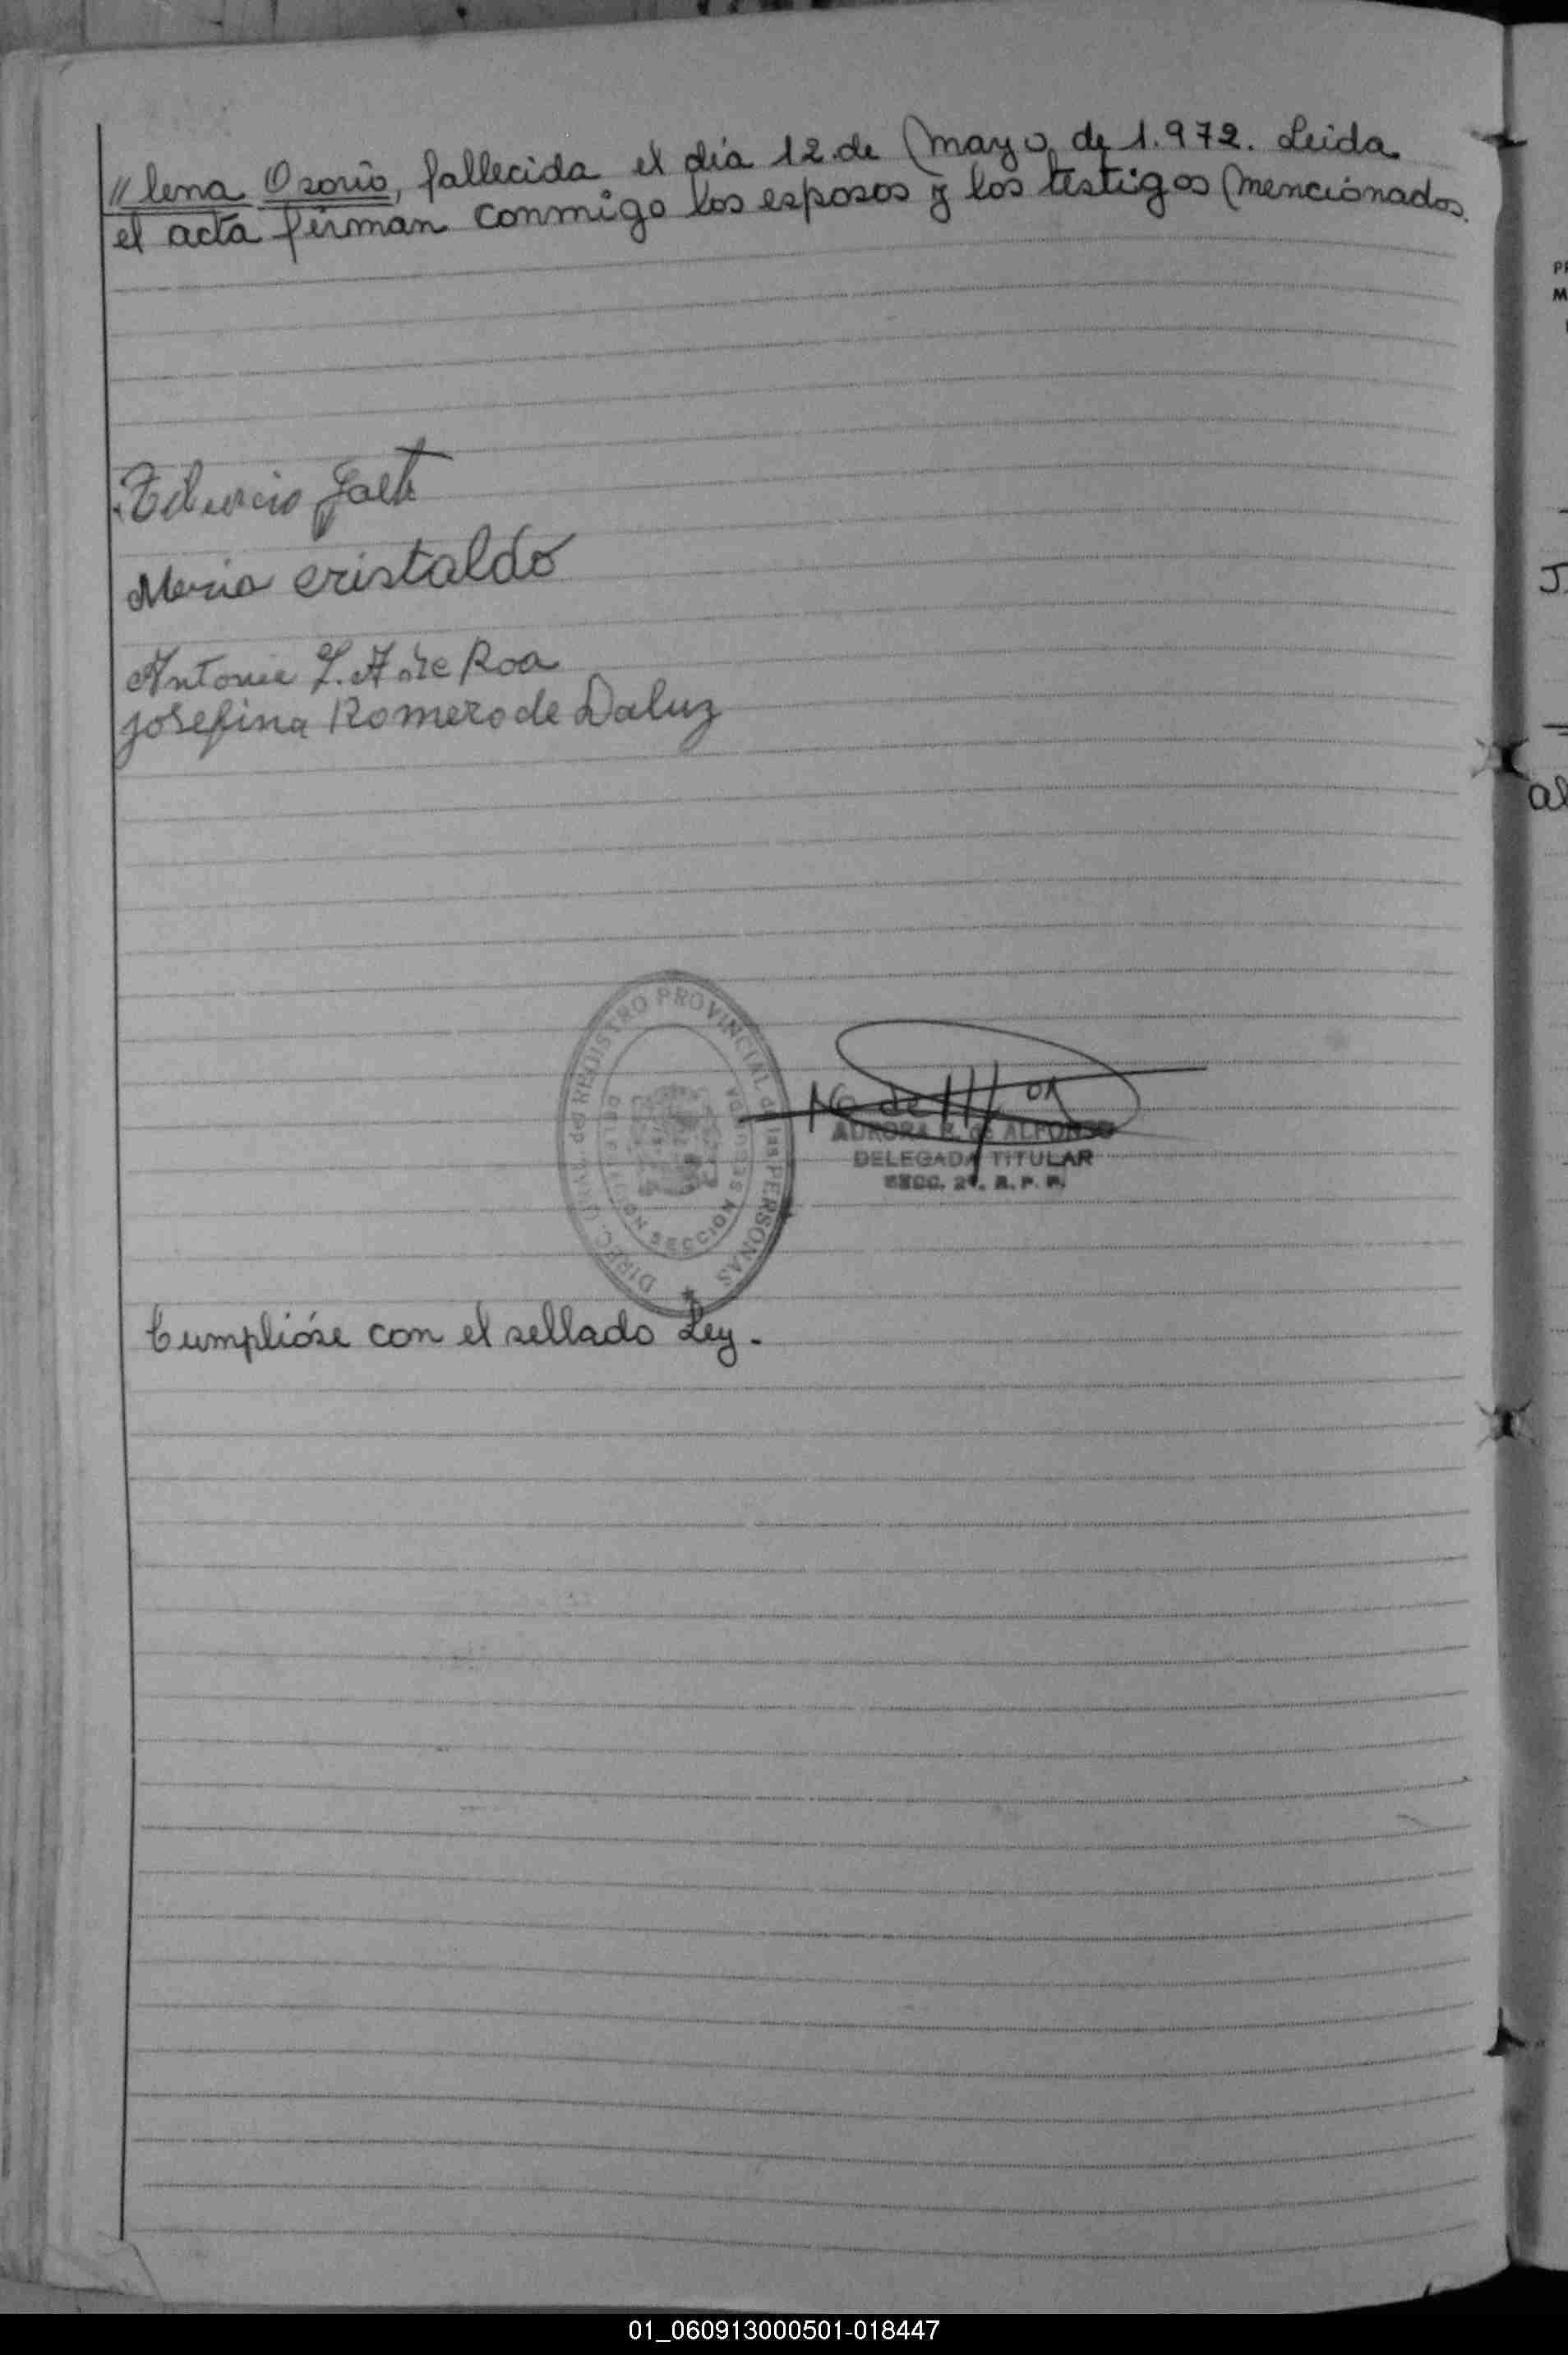 // lena Osorio, fallecida el día 12 de Mayo de 1.972. Leida
el acta firman conmigo los esposos y los testigos mencionados.
Maria cristaldo
Antonia de Roa
Josefina Romero de Daluz
DIREC. GRAL. del REGISTRO PROVINCIAL de las PERSONAS
DELEGACION SECCION SEGUNDA
AURORA R. de ALFONSO
DELEGADA TITULAR
SECC. 2ª. R. P. P.
Cumplióse con el sellado Ley.
al
01_060913000501-018447